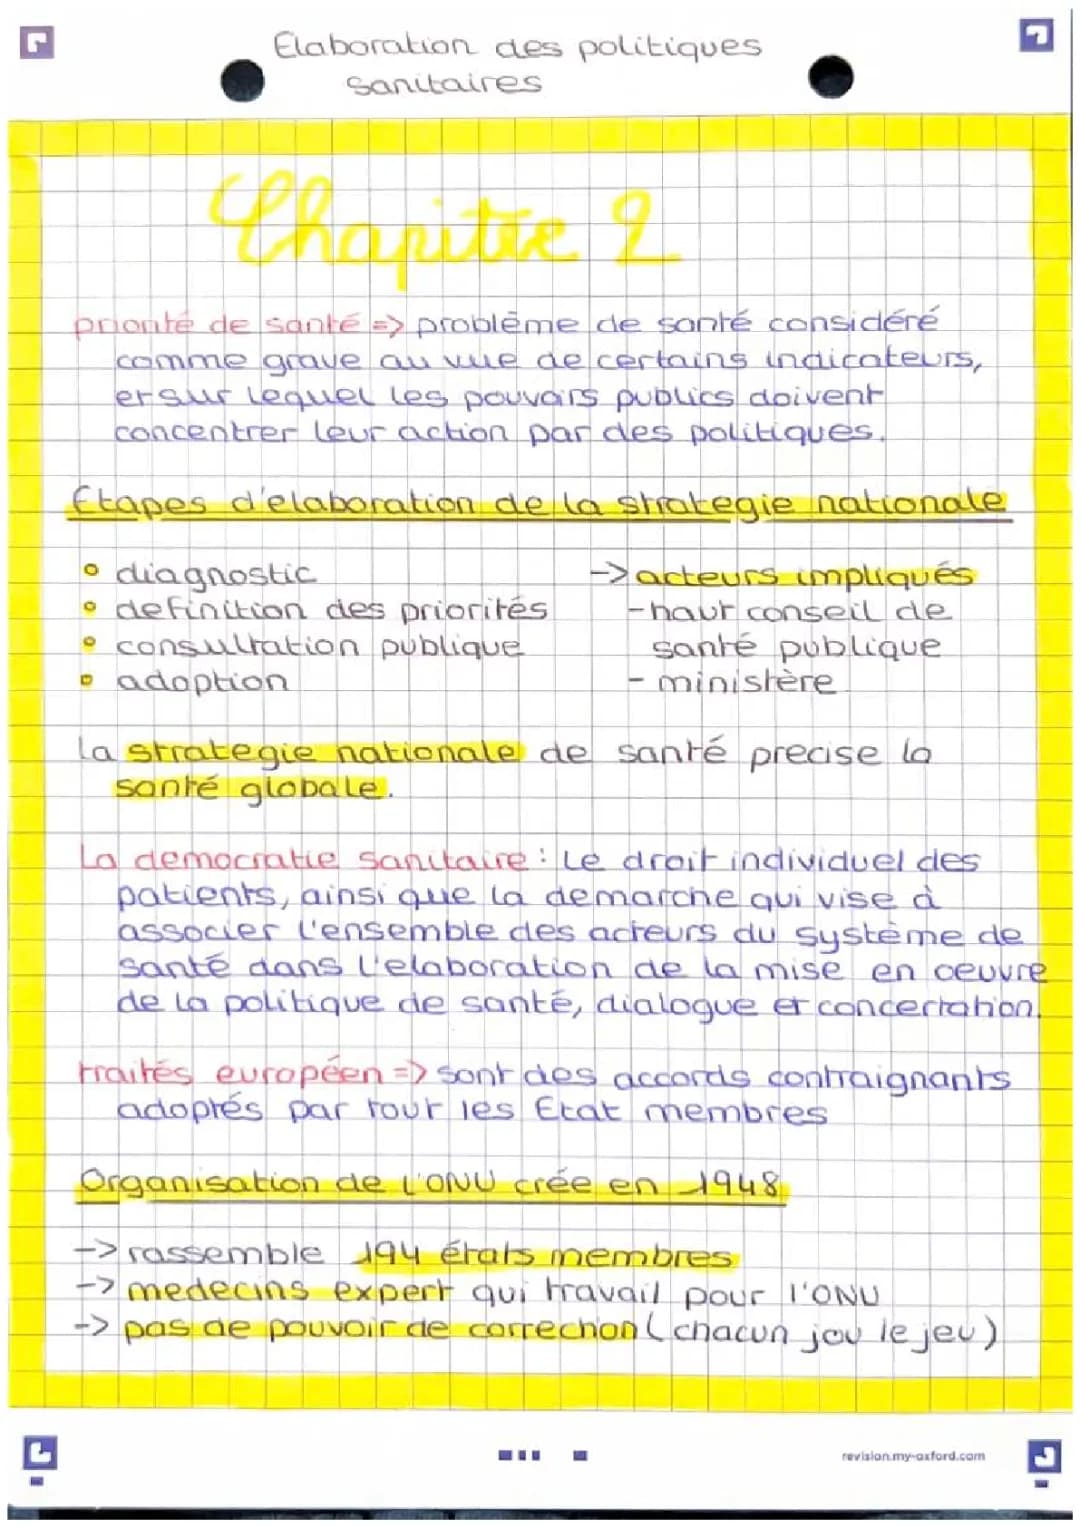 Elaboration des politiques
sanitaires
Chapitre 2
priorité de santé => problème de santé considéré
comme grave au vue de certains indicateurs,
et sur lequel les pouvoirs publics doivent
concentrer leur action par des politiques.
Etapes d'elaboration de la strategie nationale
• diagnostic
• definition des priorités
• consultation publique
• adoption
-> acteurs impliqués
- haut conseil de
santé publique
- ministère
La strategie nationale de santé precise la
santé globale.
La democratie sanitaire : Le droit individuel des
patients, ainsi que la demarche qui vise à
associer l'ensemble des acteurs du système de
santé dans l'elaboration de la mise en oeuvre
de la politique de santé, dialogue et concertation.
traités européen => sont des accords contraignants
adoptés par tout les Etat membres
Organisation de l'ONU crée en 1948
-> rassemble 194 états membres
-> medecins expert qui travail pour l'ONU
-> pas de pouvoir de correction (chacun jou le jeu)
revision.my-oxford.com